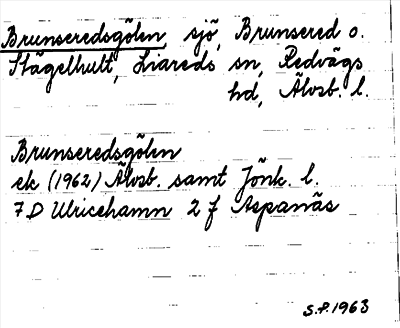 Brunseredsgölen, sjö, Brunsered o.
Stägelhult, Liareds sn, Redvägs
hd, Älvsb. l.
Brunseredsgöln
ek (1962) Älvsb. samt Jönk. l.
7 D Ulricehamn 2 f Aspanäs
S.P. 1963